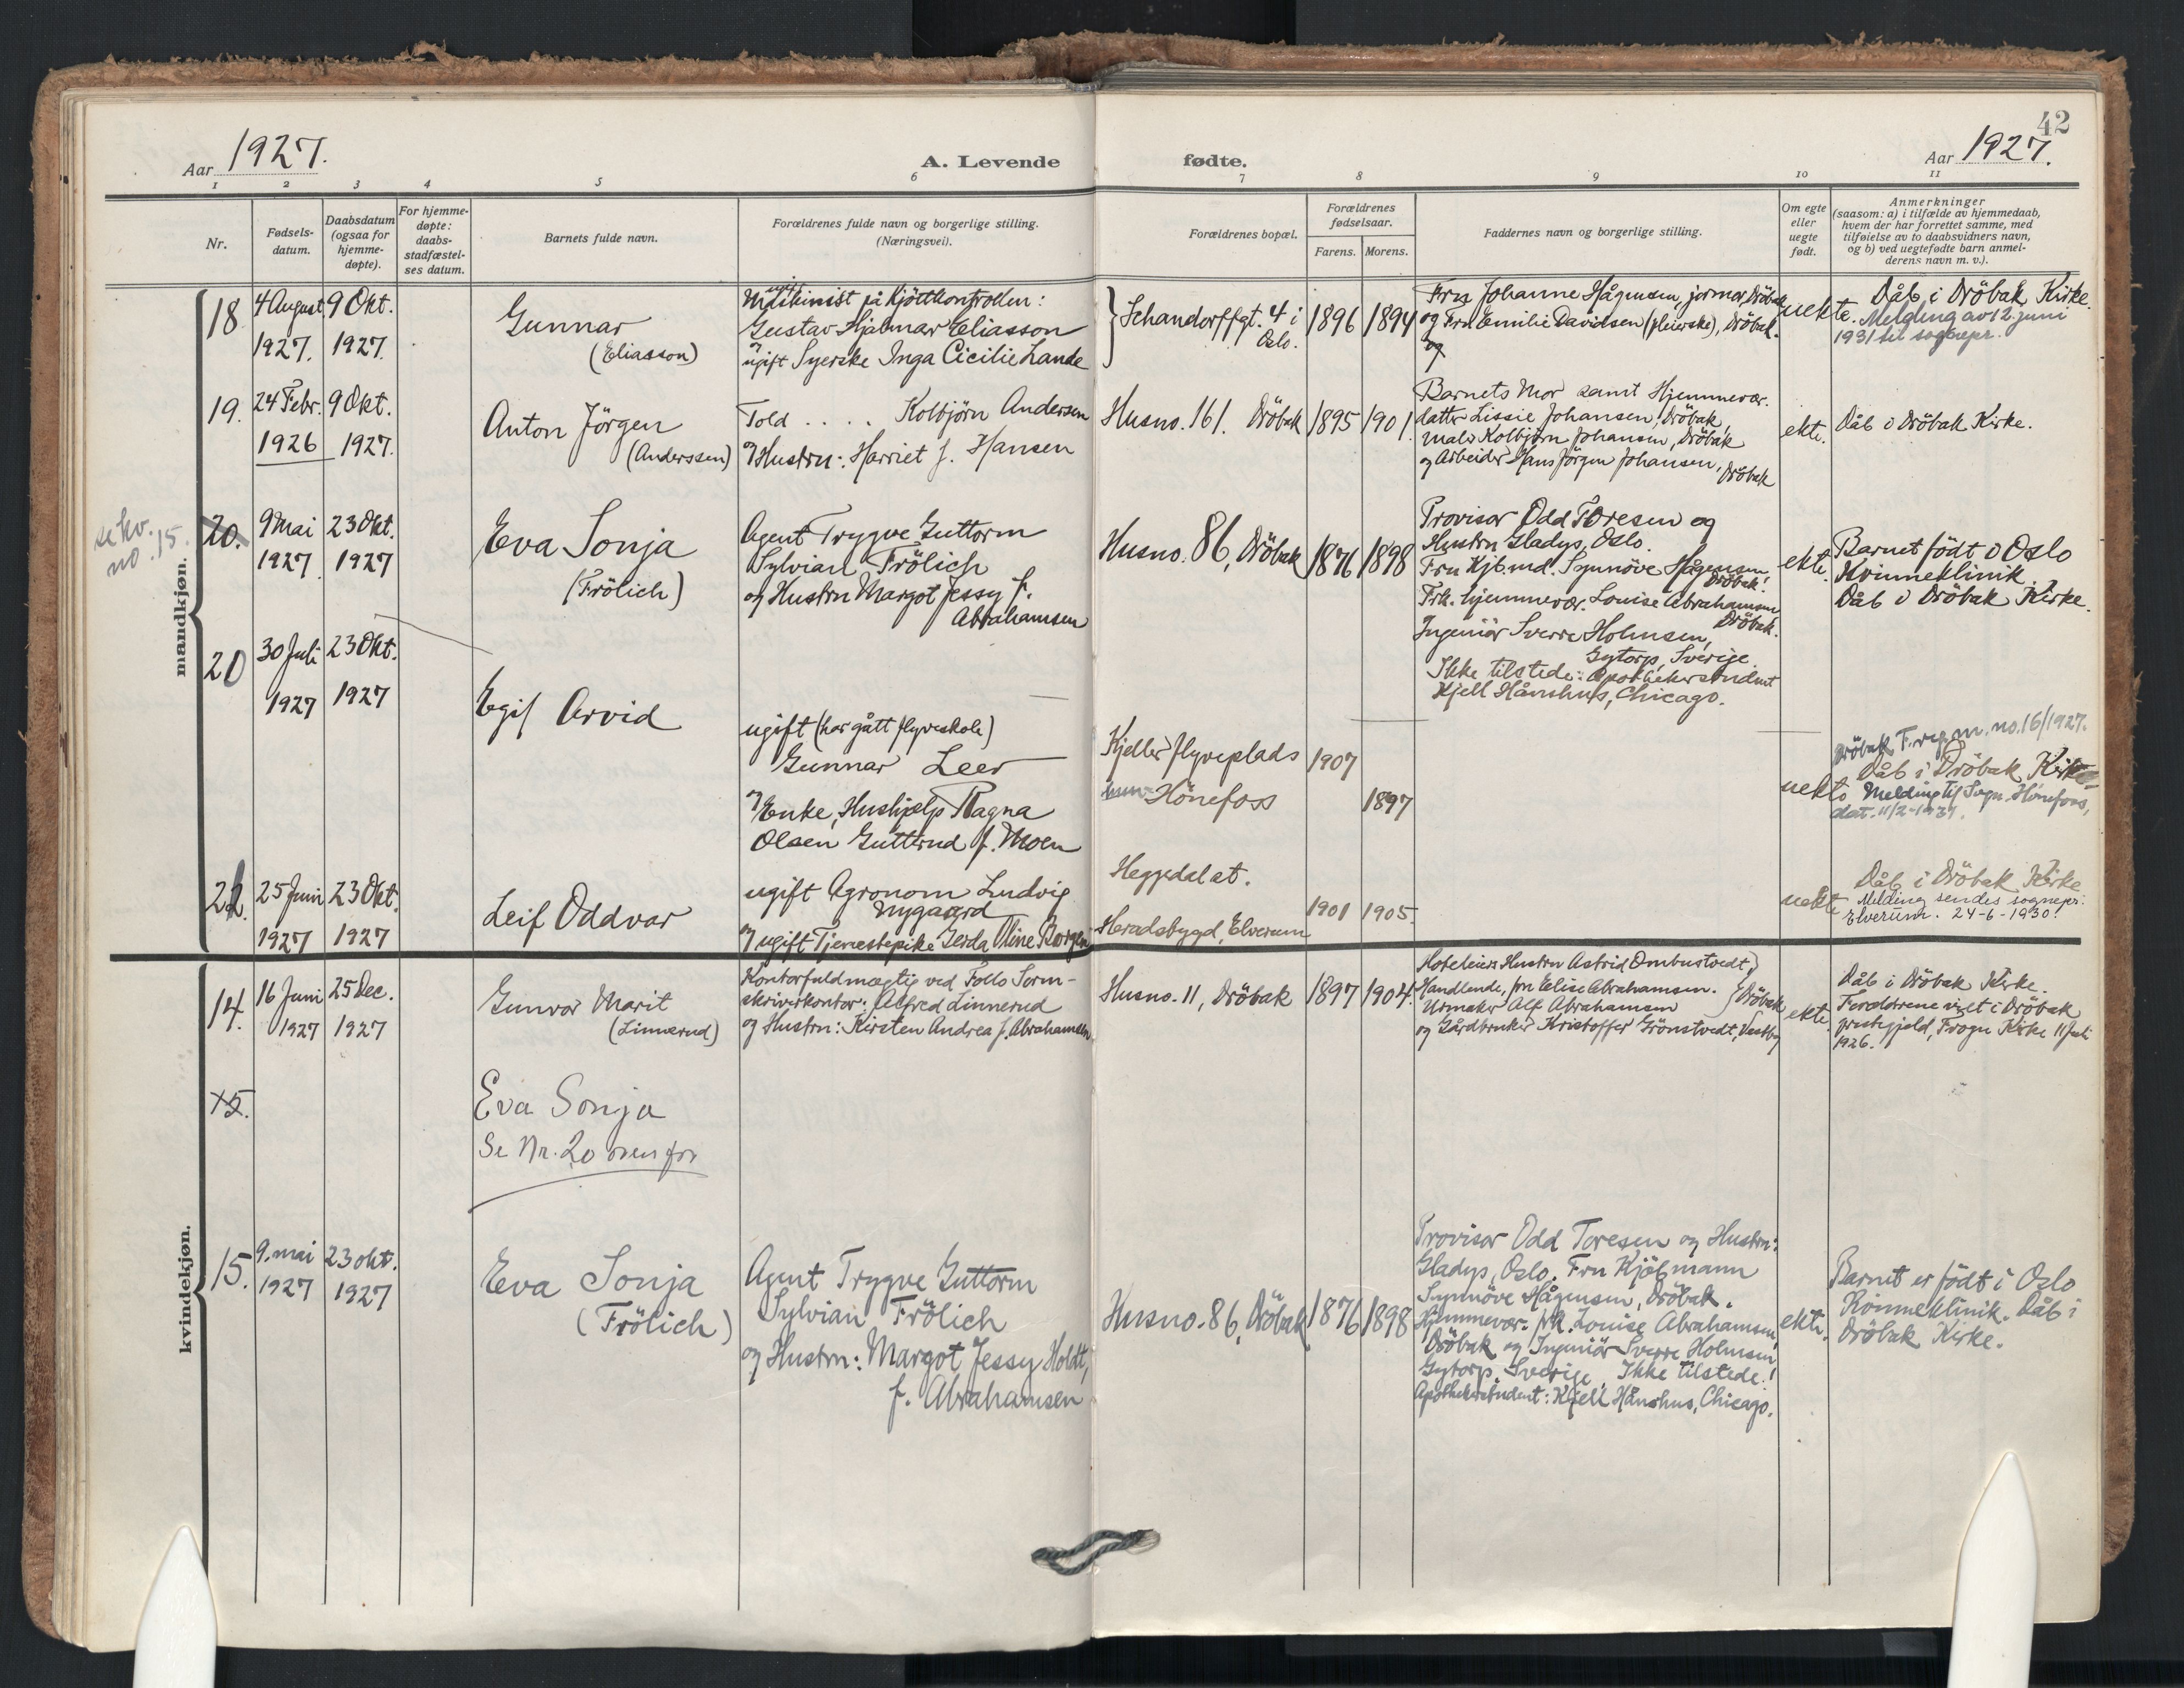 42
Aar 1927.
A. Levende
fødte.
Aar 1927.
1 2 3 4 5 6 7 8 9 10 11
Nr.
Fødsels-
datum.
Daabsdatum
(ogsaa for
hjemme-
døpte).
For hjemme-
døpte:
daabs-
stadfæstel-
ses datum.
Barnets fulde navn.
Forældrenes fulde navn og borgerlige stilling.
(Næringsvei).
Forældrenes bopæl.
Forældrenes
fødselsaar.
Farens. Morens.
Faddernes navn og borgerlige stilling.
Om egte
eller
uegte
født.
Anmerkninger
(saasom: a) i tilfælde av hjemmedaab,
hvem der har forrettet samme, med
tilføielse av to daabsvidners navn,
og b) ved uegtefødte barn anmel-
derens navn m. v.).
mandkjøn.
18
4 August
1927.
9 Okt.
1927.
Gunnar
(Eliasson)
ugift
Maskinist på Kjöttkontrollen:
Gustav Hjalmar Eliasson
og
ugift Syerske Inga Cicilie Lande
Schandorffgt. 4 i
Oslo.
1896
1894
Fru Johanne Hågensen, jormor, Dröbak
og Fru Emilie Davidsen (pleierske), Dröbak.
og
uekte.
Dåb i Dröbak Kirke.
Melding av 12. juni
1931 til sognepr.
19.
24 Febr.
1926
9 Okt.
1927.
Anton Jörgen
(Anderssen)
Told . . . . Kolbjörn Andersen
og Hustru: Harriet f. Hansen
Husno. 161. Dröbak
1895
1901.
Barnets Mor samt Hjemmevær.
datter Lissie Johansen, Dröbak,
maler Kolbjörn Johansen, Dröbak
og Arbeider Hans Jörgen Johansen,
Dröbak
ekte.
Dåb i Dröbak Kirke.
se kv.
no. 15.
20.
9 Mai
1927
23 Okt.
1927
Eva Sonja
(Frölich)
Agent Trygve Guttorm
Sylvian Frölich
og Hustru Margot Jessy f.
Abrahamsen
Husno. 86, Dröbak
1876
1898
Provisor Odd Toresen og
Hustru Gladys, Oslo.
Fru Kjöbmd. Synnöve Hågensen
Dröbak!
Frk. hjemmevær. Louise Abrahamsen
Dröbak.
Ingeniör Sverre Holmsen,
Gytorp, Sverige
Ikke tilstede: Apothekerstudent
Kjell Hånshus, Chicago.
ekte.
Barnet födt i Oslo
Kvinneklinik.
Dåb i Dröbak Kirke.
20
30 Juli
1927
23 Okt.
1927
Egil Arvid
ugift (har gått flyveskole)
Gunnar Leer
og Enke, Hushjelp Ragna
Olsen Gutterud f. Moen
Kjeller flyveplads
hun: Hönefoss
1907
1897
uekte
Dröbak F.reg.m. no. 16/1927.
Dåb i Dröbak Kirke
Melding til Sogn. Hönefoss,
dat. 11/2-1937.
21.
25 Juni
1927
23 Okt.
1927
Leif Oddvar
ugift Agronom Ludvig
Nygaard
og ugift Tjenestepike Gerda Oline Borgen
Heggedal st.
Heradsbygd, Elverum
1901
1905
uekte
Dåb i Dröbak Kirke
Melding sendes sognepr.
Elverum. 24-6-1930!
kvindekjøn.
14.
16 Juni
1927
25 Dec.
1927
Gunvor Marit
(Linnerud)
Kontorfuldmægtig ved Follo Soren-
skriverkontor: Alfred Linnerud
og Hustru: Kirsten Andrea f. Abrahamsen
Husno. 11, Dröbak
1897
1904.
Hoteleiers Hustru Astrid Ombustvedt,
Handlende, fru Elise Abrahamsen.
Urmaker Alf Abrahamsen
Dröbak
og Gårdbruker Kristoffer Grönstvedt, Vestby
ekte
Dåb i Dröbak Kirke.
Foreldrene viet i Dröbak
prestegjeld, Frogn Kirke 11 Juli
1926.
15.
Eva Sonja
Se Nr. 20 ovenfor
15.
9. mai
1927
23 okt.
1927
Eva Sonja
(Frölich)
Agent Trygve Guttorm
Sylvian Frölich
og Hustru: Margot Jessy Holdt,
f. Abrahamsen
Husno. 86, Dröbak
1876
1898
Provisor Odd Toresen og Hustru:
Gladys, Oslo. Fru Kjöbmann
Synnöve Hågensen, Dröbak.
Hjemmevær. frk. Louise Abrahamsen,
Dröbak og Ingeniör Sverre Holmsen
Gytorp, Sverige. Ikke tilstede!
Apothekerstudent: Kjell Hånshus, Chicago.
ekte.
Barnet er födt i Oslo
Kvinneklinik. Dåb i
Dröbak Kirke.